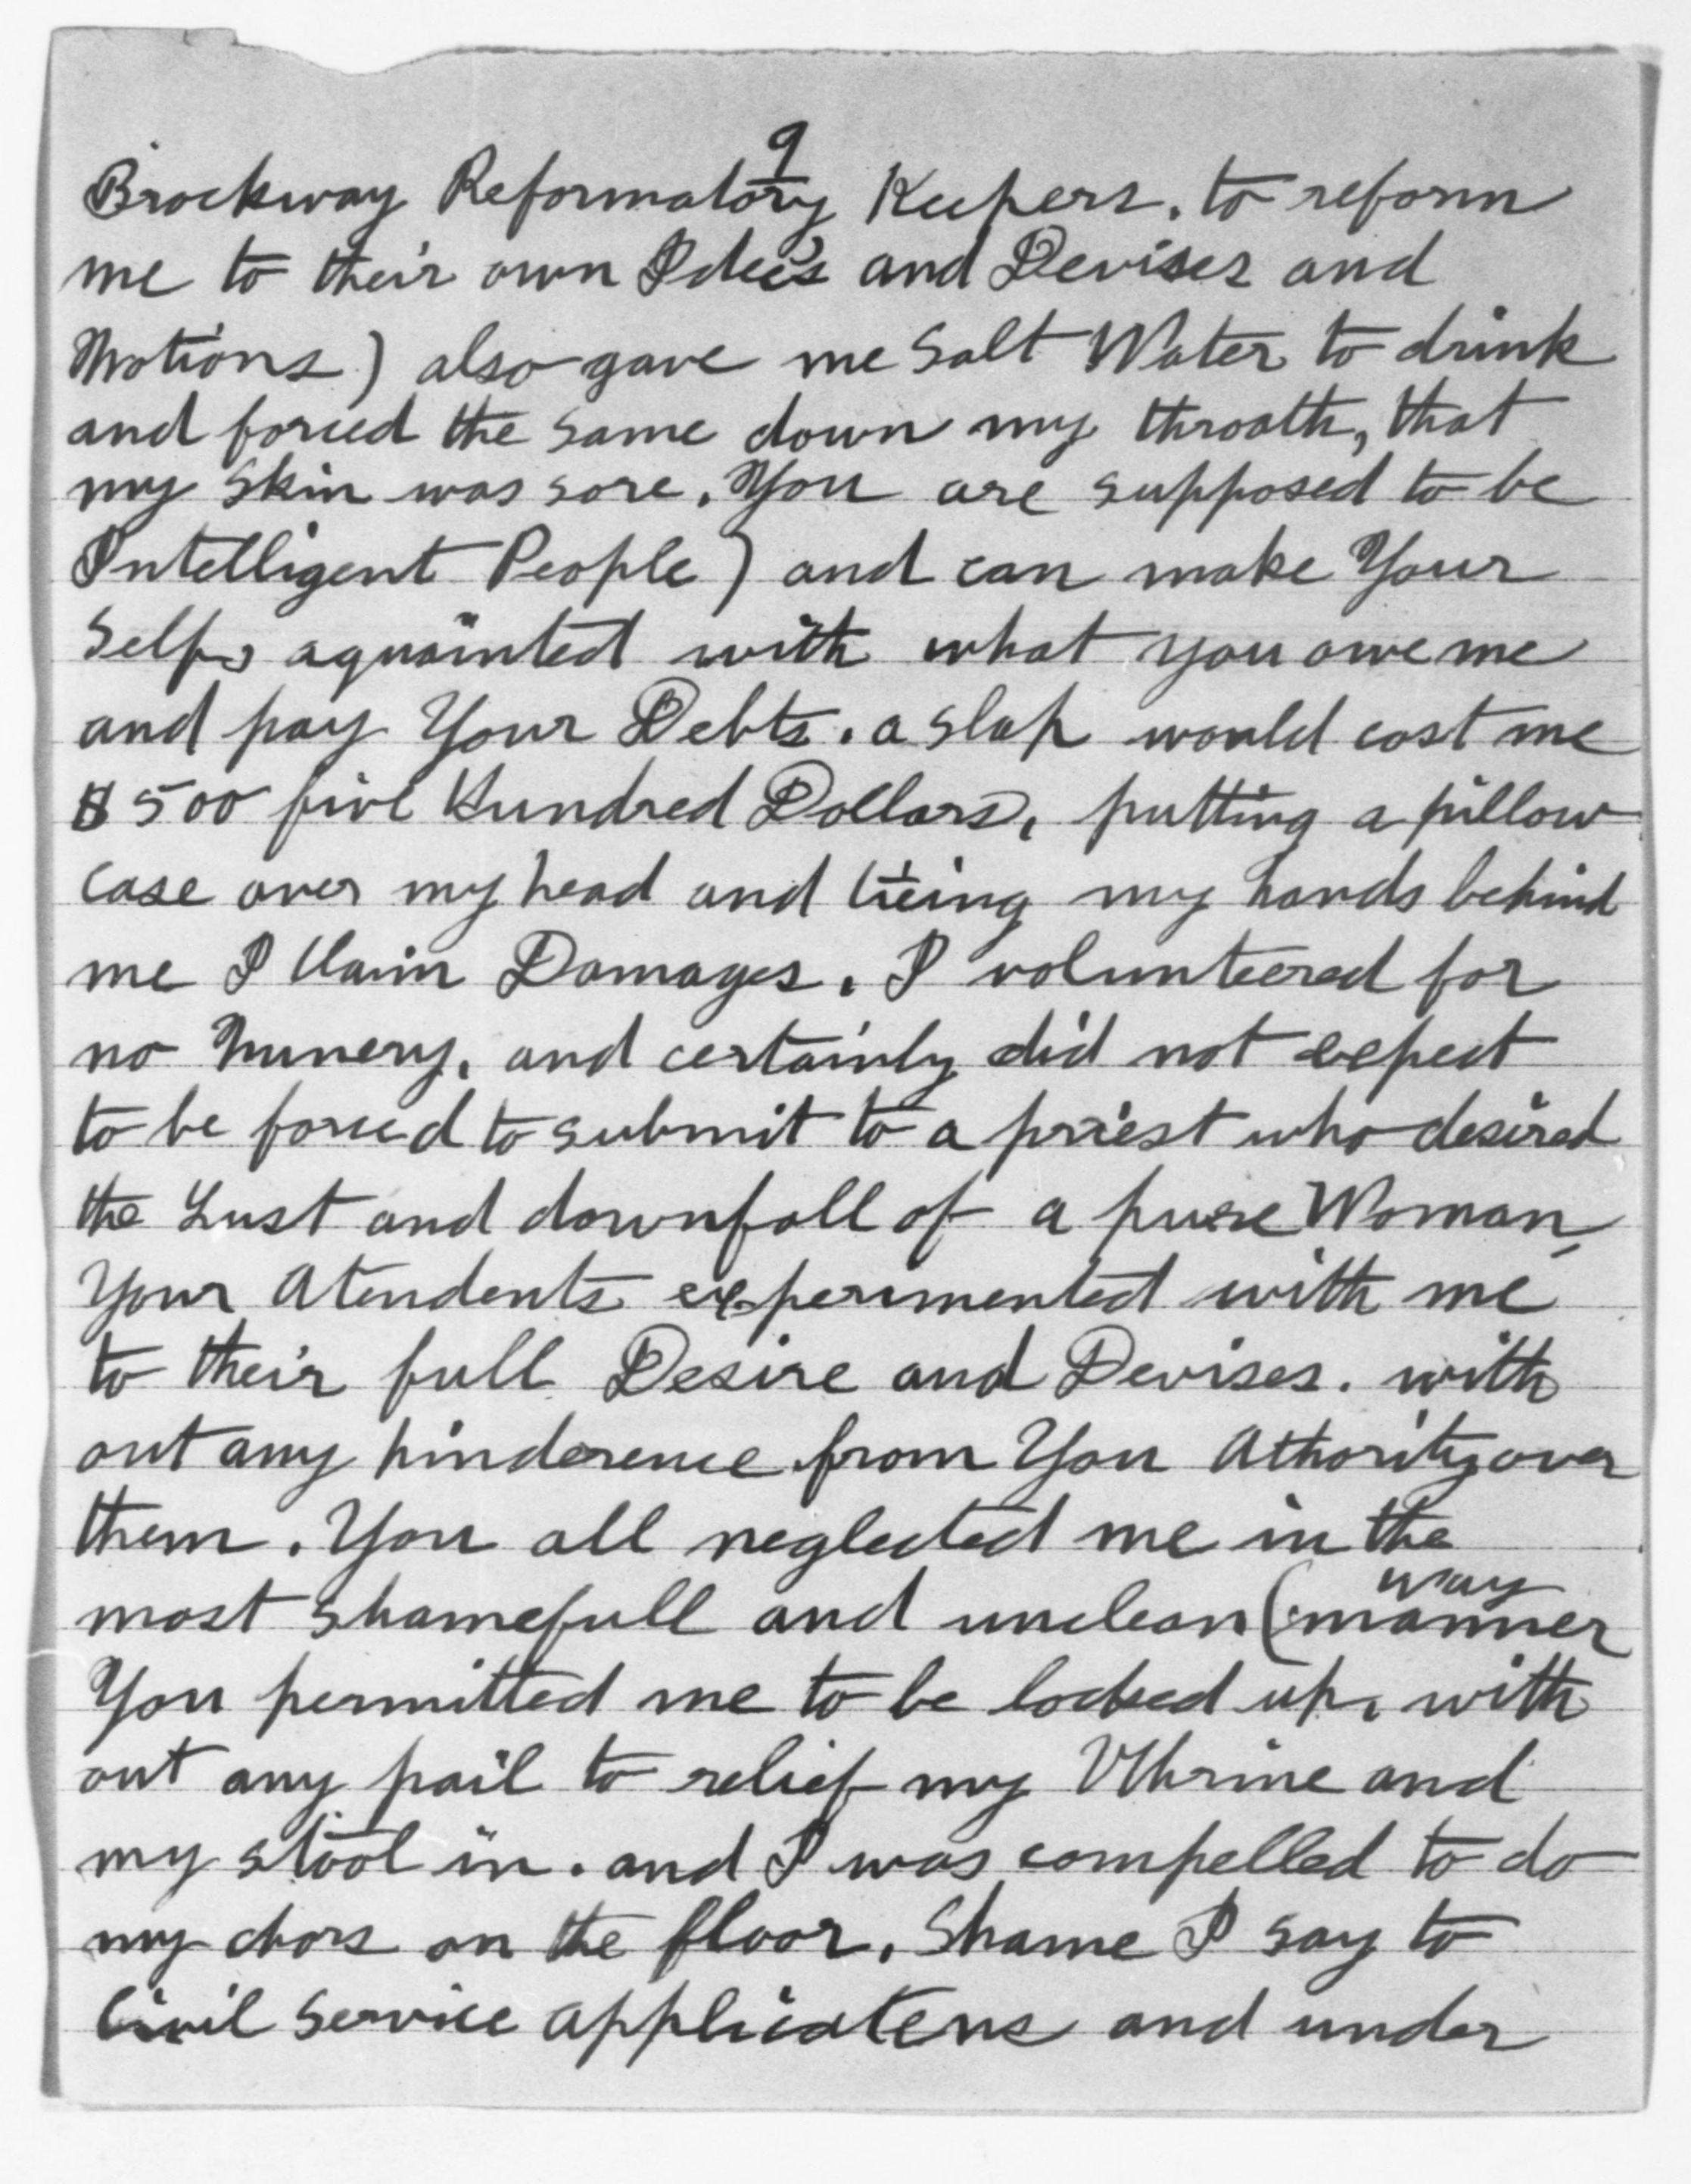 9
Brockway Reformatory Keepers. to reform
me to their own Idee's and Devises and
Motions) also gave me Salt Water to drink
and forced the same down my throath, that
my skin was sore. You are supposed to be
Intelligent People) and can make Your
Selfs aquainted with what you owe me
and pay Your Debts. a slap would cost me
$500 five Hundred Dollars, putting a pillow
case over my head and tieing my hands behind
me I Claim Damages. I volunteered for
no Nunery, and certainly did not expect
to be forced to submit to a priest who desired
the Lust and downfall of a pure Woman,
Your Atendents experimented with me
to their full Desire and Devises. with
out any hinderence from You Athority over
them. You all neglected me in the
way
most shamefull and unclean (manner
You permitted me to be locked up, with
out any pail to relief my Uhrine and
my stool in. and I was compelled to do
my chors on the floor. Shame I say to
Civil Service applicatens and under